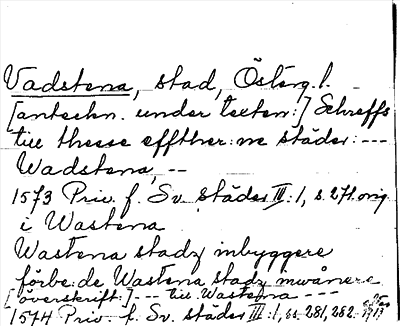 Vadstena, stad, Östergl.
[anteckn. under texten:] Schreffs
till thesse effther:ne städer: ---
Wadstena, --
1573 Priv. f. Sv. städer III:1, s. 271. orig.
i Wastena
Wastena stadz inbyggere
förbe:de Wastena stadz inwånere
[överskrift:] --- till Wastena ---
1574 Priv. f. Sv. städer III:1, ss. 281, 282.